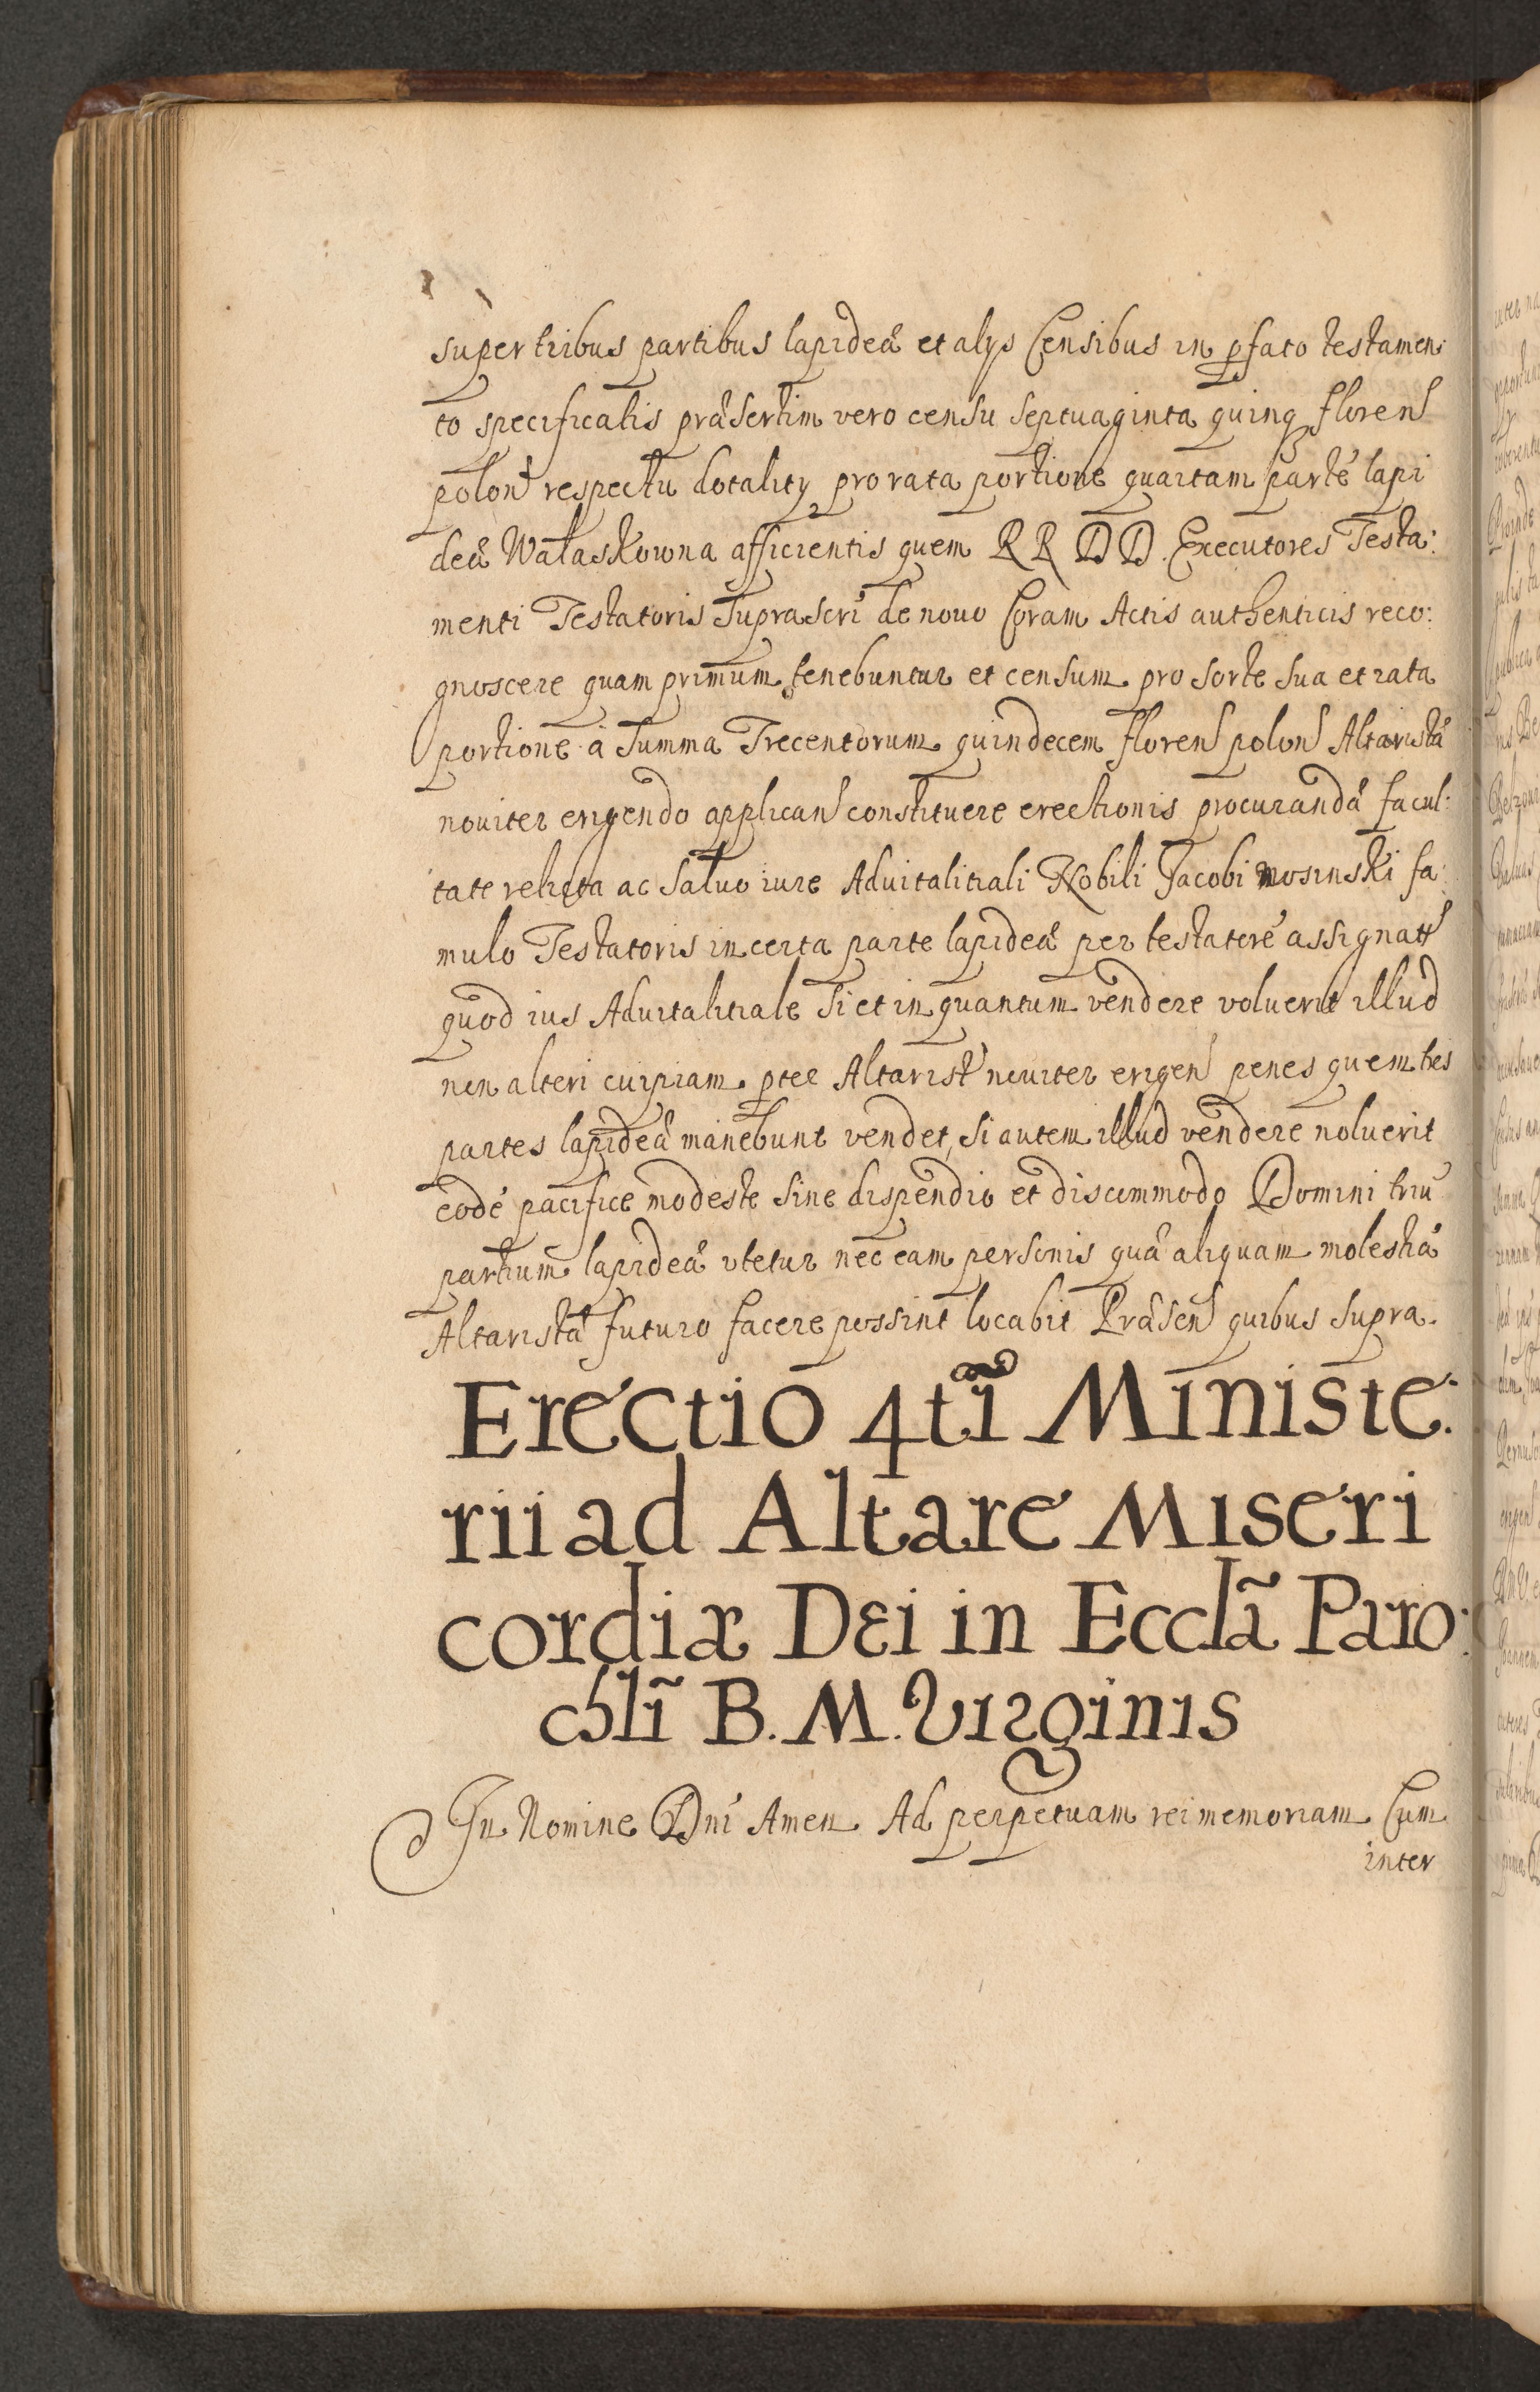 super tribus partibus lapideâ et alys Censibus in pfato testamen:
to specificatis prâsertim vero censu septuaginta quinq florens
polon respectu dotality pro rata portione quartam parté lapi
deâ Wałaskowna afficientis quem RR DD. Executores Testa:
menti Testatoris suprascri de nouo Coram Actis authenticis reco:
gnoscere quam primum tenebuntur et censum pro sorte sua et rata
portione à summa Trecentorum quindecem florens polons Altaristâ
nouiter erigendo applicans constituere erectionis procurandâ facul:
tate relicta ac saluo iure Aduitalitiali Nobili Jacobi mosinski fa:
mulo Testatoris in certa parte lapideâ per testatoré assignats
quod ius Aduitalitiale si et in quantum vendere voluerit illud
non alteri cuipiam pter Altarist nouiter erigens penes quem tres
partes lapideâ manebunt vendet, si autem illud vendere noluerit
eodé pacifice modeste sine dispendio et discommodo Domini triũ
partium lapideâ vtetur nec eam personis quâ aliquam molestiâ
Altaristâ futuro facere possint locabit Prâsens quibus supra.
Erectio 4ti Ministe:
rii ad Altare Miseri
cordiæ Dei in Ecclã Paro:
chli B. M. Virginis
In Nomine Dni Amen Ad perpetuam rei memoriam Cum
inter